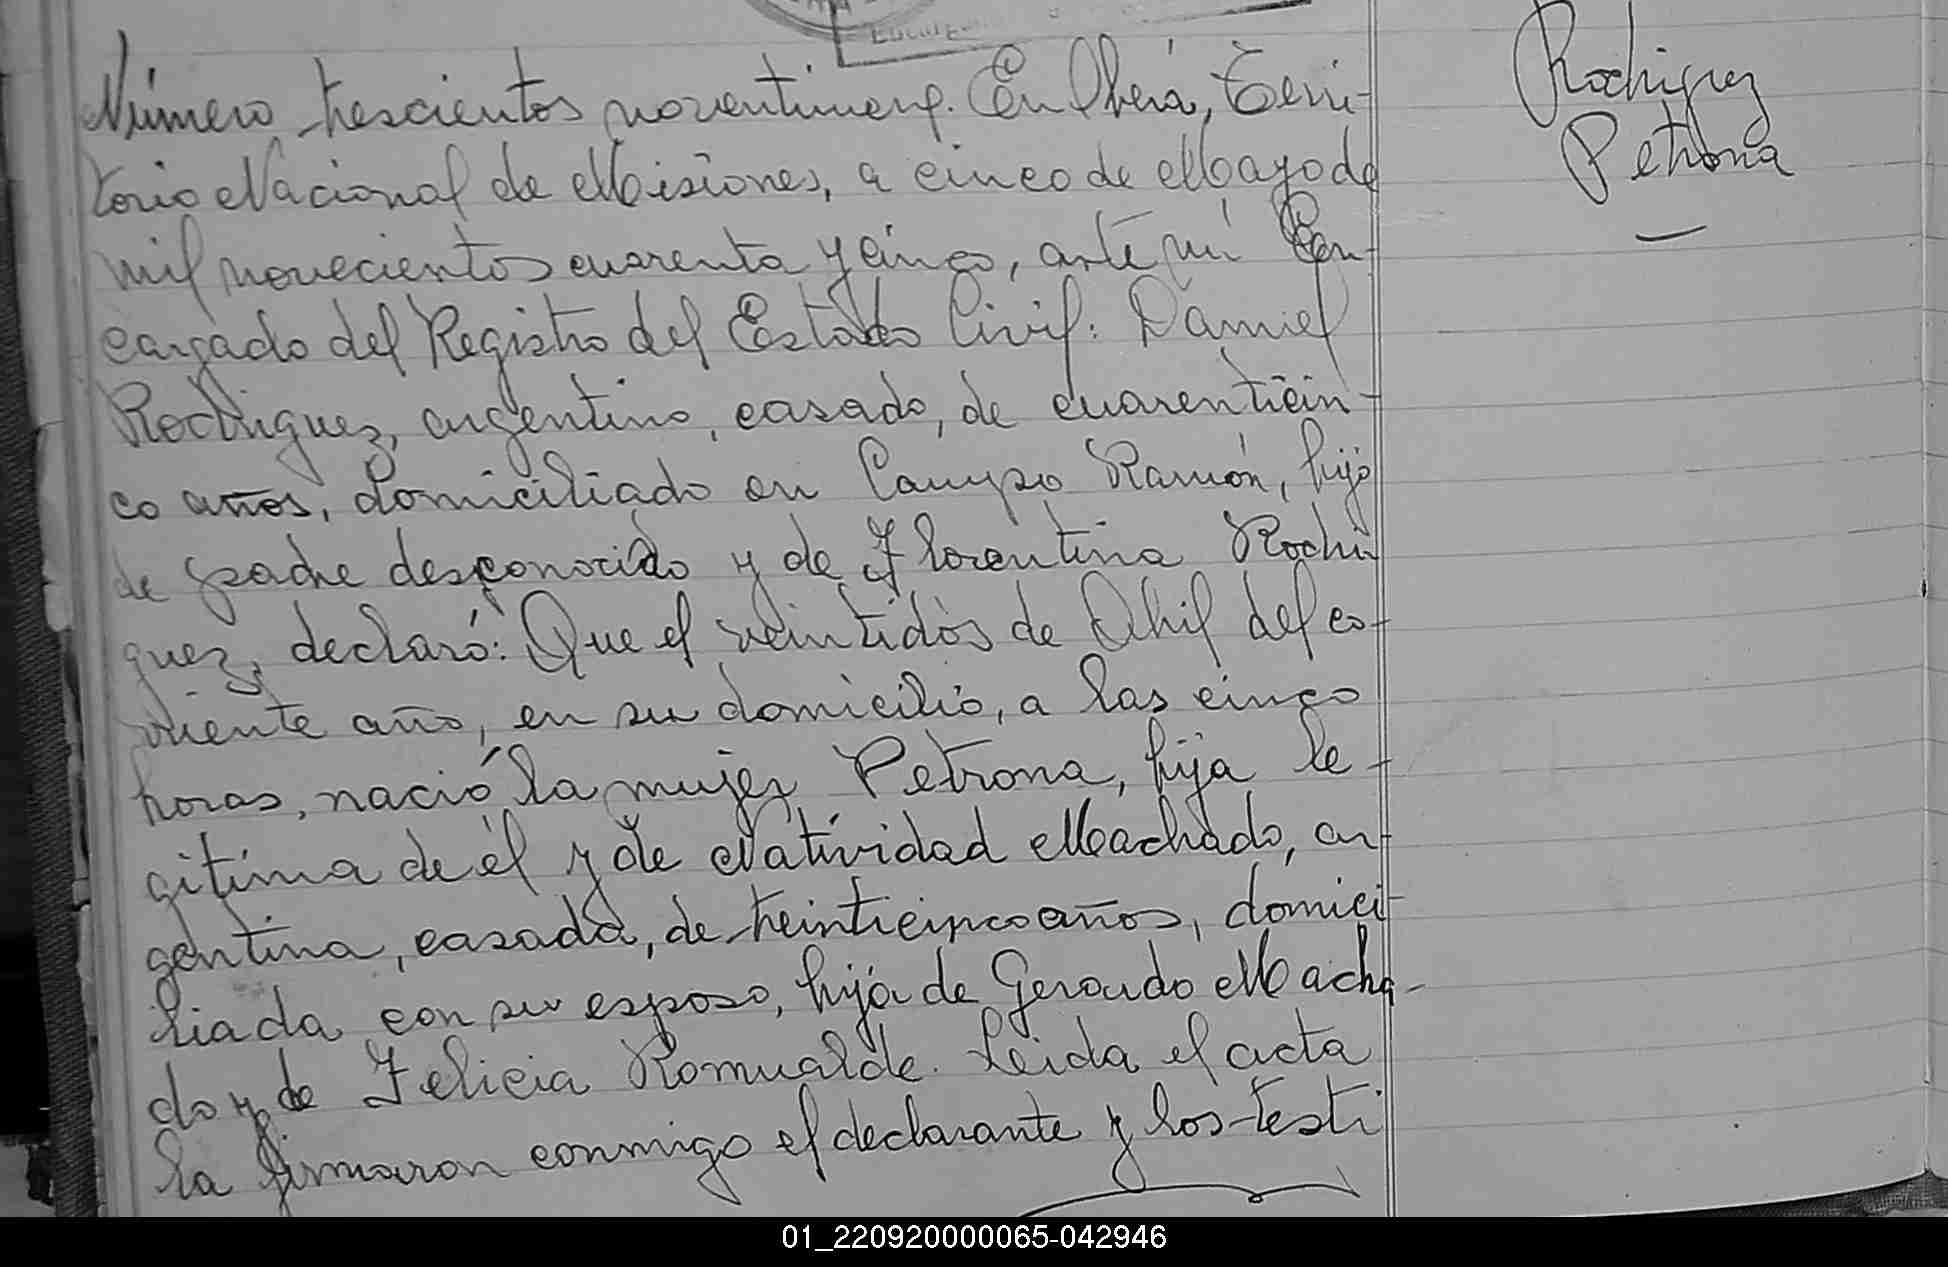 Número trescientos noventinueve. En Oberá, Terri-
torio Nacional de Misiones, a cinco de Mayo de
mil novecientos cuarenta y cinco, ante mí En-
cargado del Registro del Estado Civil: Daniel
Rodriguez, argentino, casado, de cuarenticin-
co años, domiciliado en Campo Ramón, hijo
de padre desconocido y de Florentina Rodri
guez, declaró: Que el veintidós de Abril del co-
rriente año, en su domicilio, a las cinco
horas, nació la mujer Petrona, hija le-
gitima de él y de Natividad Machado, ar-
gentina, casada, de treinticinco años, domici-
liada con su esposo, hija de Gerardo Macha-
do y de Felicia Romualde. Leida el acta
la firmaron conmigo el declarante y los testi
Rodriguez
Petrona
01_220920000065-042946